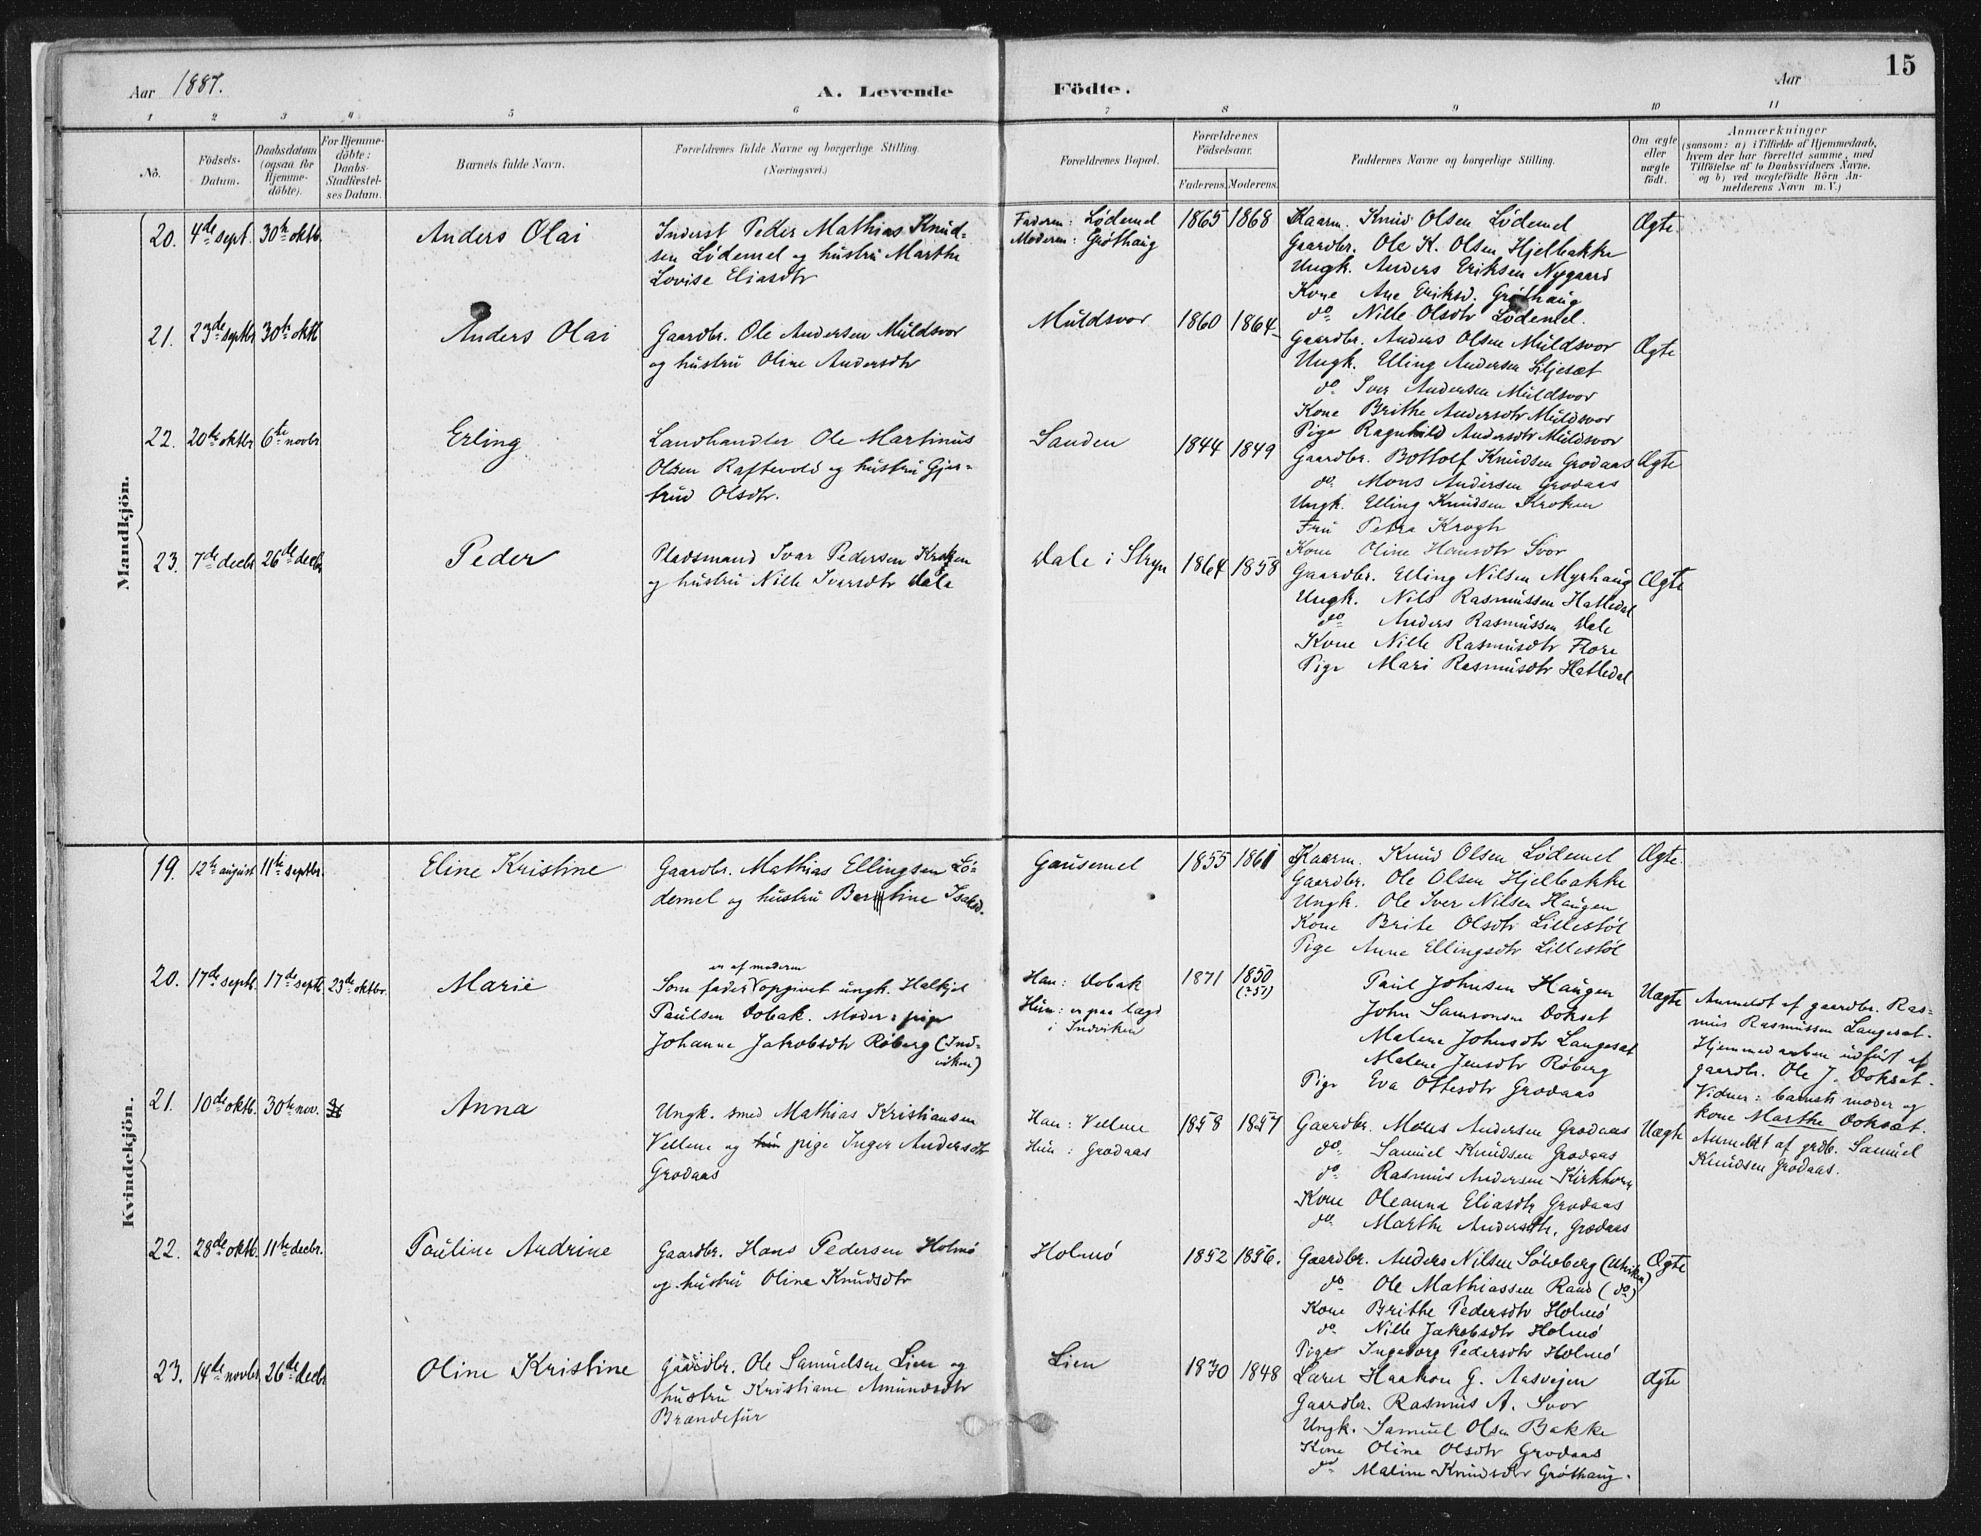 Aar 1887.
A. Levende Födte.
Aar
15
1 2 3 4 5 6 7 8 9 10 11
No.
Födsels-Datum.
Daabsdatum (ogsaa for Hjemme-döbte).
For Hjemme-döbte: Daabs-Stadfæstel-ses Datum.
Barnets fulde Navn.
Forældrenes fulde Navne og borgerlige Stilling.
(Næringsvei.)
Forældrenes Bopæl.
Forældrenes Födselsaar.
Faderens. Moderens.
Faddernes Navne og borgerlige Stilling.
Om ægte eller uægte födt.
Anmærkninger
(saasom: a) i Tilfælde af Hjemmedaab,
hvem der har forrettet samme, med
Tilföielse af to Daabsvidners Navne.
og b) ved uægtefödte Börn An-
melderens Navn m. V.)
Mandkjön.
20. 4de sept. 30te oktb. Anders Olai
Inderst Peder Mathias Knud-
sen Lödemel og hustru Marthe
Lovise Eliasdtr
Faderen: Lödemel
Moderen: Gröthaug
1865 1868
Kaarm. Knud Olsen Lödemel
Gaardbr. Ole K. Olsen Hjelbakke
Ungk. Anders Eriksen Nygaard
Kone Ane Eriksd. Gröthaug
do Nille Olsdtr Lödemel.
Ægte
21. 23de septbr 30te oktb Anders Olai
Gaardbr. Ole Andersen Muldsvor
og hustru Oline Andersdtr
Muldsvor
1860 1864
Gaardbr. Anders Olsen Muldsvor
Ungk. Elling Andersen Liljesæt
do Iver Andersen Muldsvor
Kone Brithe Andersdtr Muldsvor
Pige Ragnhild Andersdtr Muldsvor
Ægte
22. 20de oktbr 6te novbr Erling
Landhandler Ole Martinus
Olsen Raftevold og hustru Gjer-
trud Olsdtr.
Sanden
1844 1849
Gaardbr. Bottolf Knudsen Grodaas
do. Mons Andersen Grodaas
Ungk. Elling Knudsen Kroken
Fru Petra Krogh
Kone Oline Hansdtr Svor
Ægte
23. 7de decbr 26de decbr. Peder
Pladsmand Ivar Pedersen Kroken
og hustru Nille Ivarsdtr Dale
Dale i Stryn
1864 1858
Gaardbr. Elling Nilsen Myrhaug
Ungk. Nils Rasmussen Hatledal
do Anders Rasmussen Dale
Kone Nille Rasmusdtr Flore
Pige Mari Rasmusdtr Hatledal
Ægte
Kvindekjön.
19. 12te august 11te septbr. Eline Kristine
Gaardbr. Mathias Ellingsen Lö-
demel og hustru Bertine Isaksd.
Gausemel
1855 1861
Kaarm. Knud Olsen Lödemel
Gaardbr. Ole Olsen Hjelbakke
Ungk. Ole Iver Nilsen Haugen
Kone Brite Olsdtr Lillestöl
Pige Anne Ellingsdtr Lillestöl
Ægte.
20. 17de septb. 17de septb 23de oktbr. Marie
er af moderen
Som fader opgivet ungk. Halkjel
Paulsen Dobak. Moder: pige
Johanne Jakobsdtr Röberg (Ind-
viken)
Han: Dobak
Hun: er paa lægd
i Indviken
1871 1850
(?51)
Paul Johnsen Haugen
John Samsonsen Dokset
Malene Johnsdtr Langesæt
Malene Jensdtr Röberg
Pige Eva Ottesdtr Grodaas
Uægte
Anmeldt af gaardbr. Ras-
mus Rasmussen Langesæt.
Hjemmedaaben udfört af
gaardbr. Ole J. Dokset.
Vidner: barnets moder og
kone Marthe Dokset.
21. 10de oktb. 30te nov. Anna
Ungk. smed Mathias Kristiansen
Vellene og pige Inger Andersdtr
Grodaas
Han: Vellene
Hun: Grodaas
1858 1857
Gaardbr. Mons Andersen Grodaas
do. Samuel Knudsen Grodaas
do. Rasmus Andersen Kirkhorn
Kone Oleanna Eliasdtr Grodaas
do. Marthe Andersdtr. Grodaas
Uægte
Anmeldt af grdb. Samuel
Knudsen Grodaas.
22. 28de oktb. 11te decbr. Pauline Andrine
Gaardbr. Hans Pedersen Holmö
og hustru Oline Knudsdtr
Holmö
1852 1856.
Gaardbr. Anders Nilsen Sölvberg (Utviken)
do Ole Mathiassen Rand (do)
Kone Brithe Pedersdtr Holmö
do. Nille Jakobsdtr Holmö
Pige Ingeborg Pedersdtr Holmö
Ægte
23. 14de novbr. 26de decbr Oline Kristine
Gaardbr. Ole Samuelsen Lien og
hustru Kristiane Amundsdtr
Brændefur
Lien
1830 1848
Lærer Haakon G. Aasvejen
Gaardbr. Rasmus A. Svor
Ungk. Samuel Olsen Bakke
Kone Oline Olsdtr Grodaas
do Maline Knudsdtr Gröthaug.
ægte